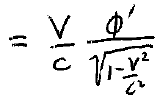 = \frac{v}{c} \frac{\phi'}{\sqrt{1-\frac{v^2}{c^2}}}